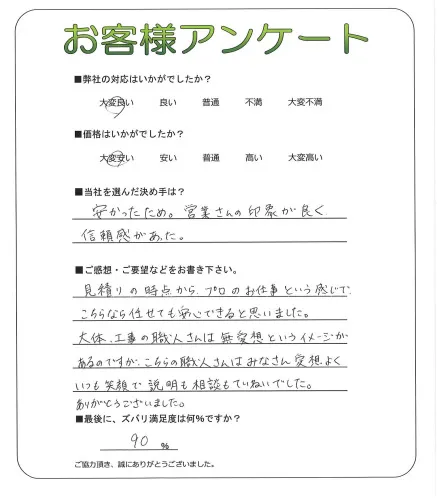 お客様アンケート
■弊社の対応はいかがでしたか?
大変良い 良い 普通 不満 大変不満
■価格はいかがでしたか?
大変安い 安い 普通 高い 大変高い
■当社を選んだ決め手は?
安かったため。営業さんの印象が良く
信頼感があった。
■ご感想・ご要望などをお書き下さい。
見積りの時点から、プロのお仕事という感じで、
こちらなら任せても安心できると思いました。
大体、工事の職人さんは無愛想というイメージが
あるのですが、こちらの職人さんはみなさん愛想よく
いつも笑顔で説明も相談もていねいでした。
ありがとうございました。
■最後に、ズバリ満足度は何%ですか?
90 %
ご協力頂き、誠にありがとうございました。